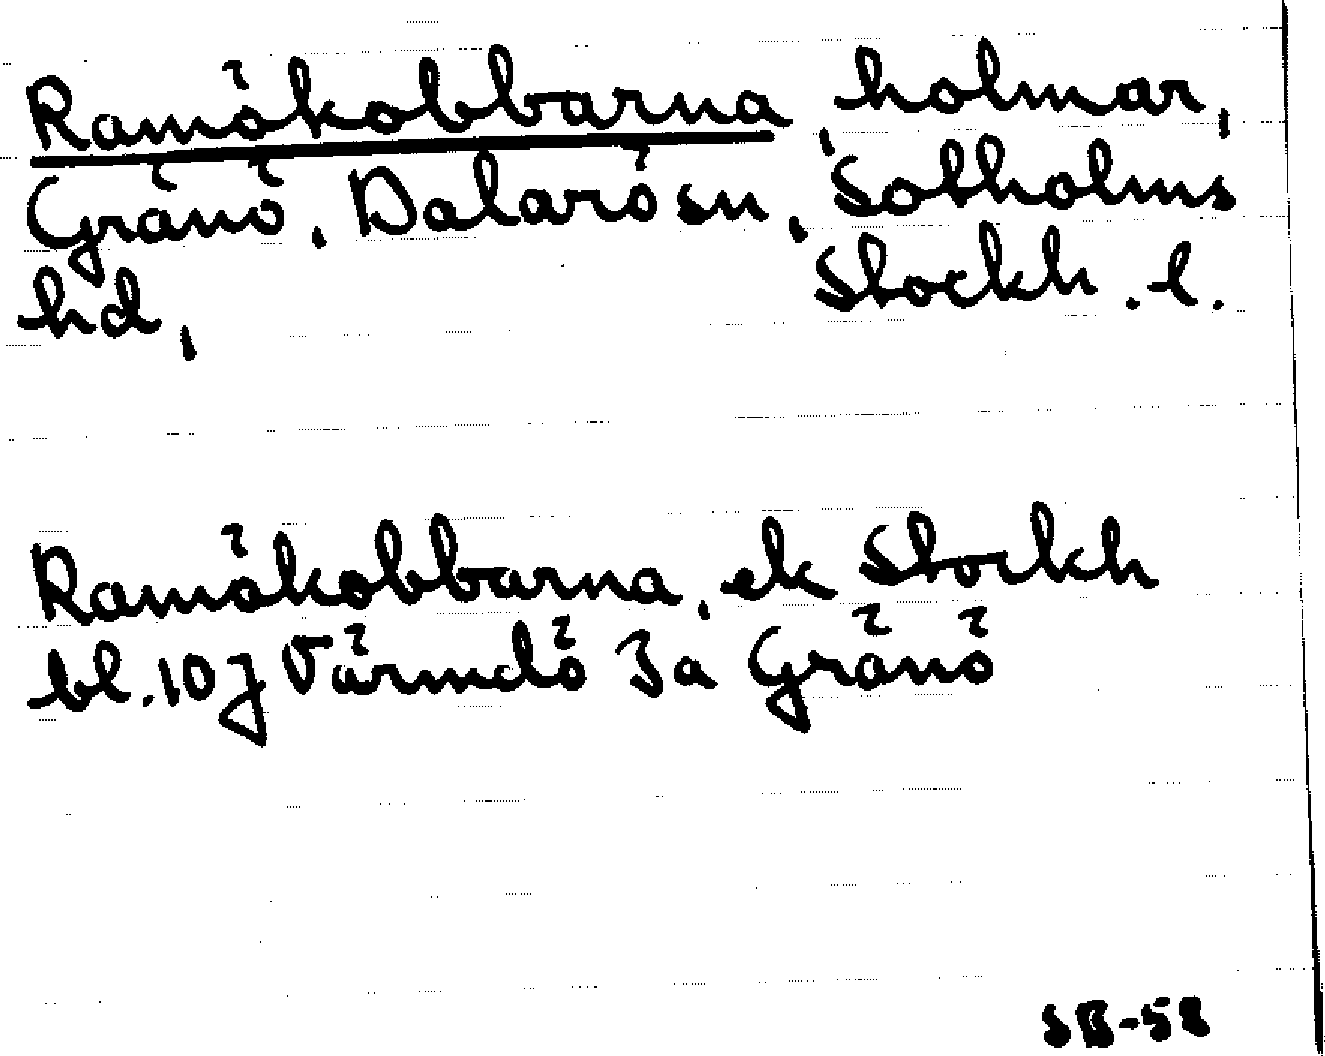 Ramökobbarna, holmar,
Gränö, Dalarö sn, Sotholms
hd, Stockh. l.
Ramökobbarna, ek Stockh
bl. 10 J Värmdö Ja Gränö
SB-58